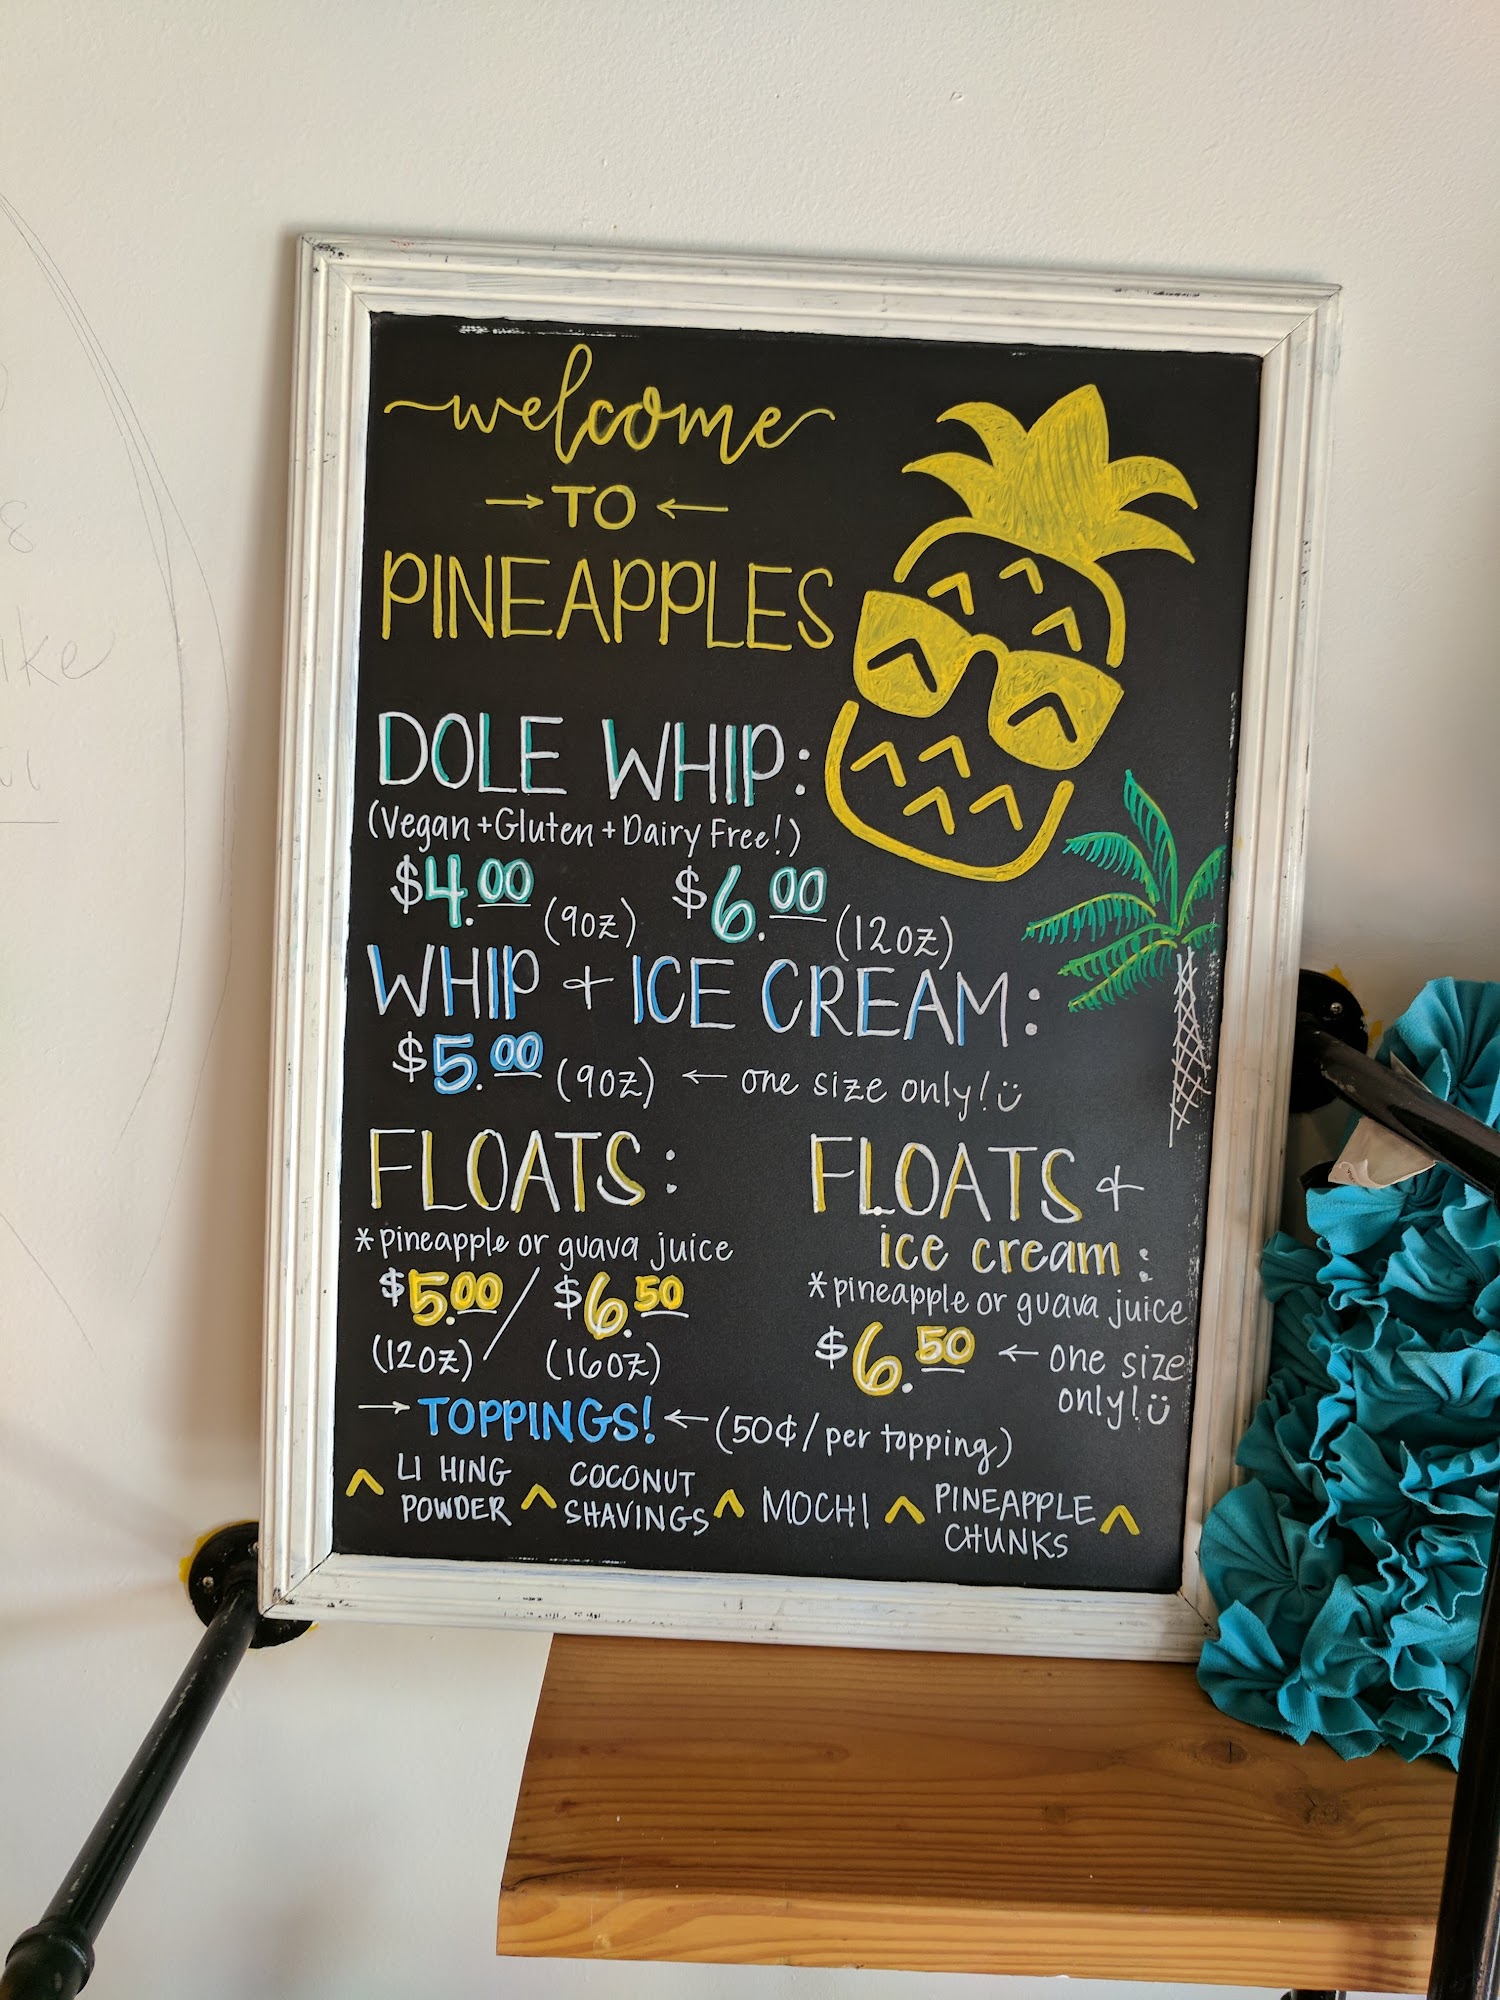 welcome
→TO←
PINEAPPLES
DOLE WHIP:
(Vegan+Gluten+Dairy Free!)
$4.00 (9oz) $6.00 (12oz)
WHIP + ICE CREAM:
$5.00 (9oz) ← one size only!
FLOATS:
*pineapple or guava juice
$5.00 / $6.50
(12oz) (16oz)
FLOATS +
ice cream:
*pineapple or guava juice
$6.50 ← one size
only!
→ TOPPINGS! ← (50¢/per topping)
LI HING
POWDER
COCONUT
SHAVINGS
MOCHI
PINEAPPLE
CHUNKS